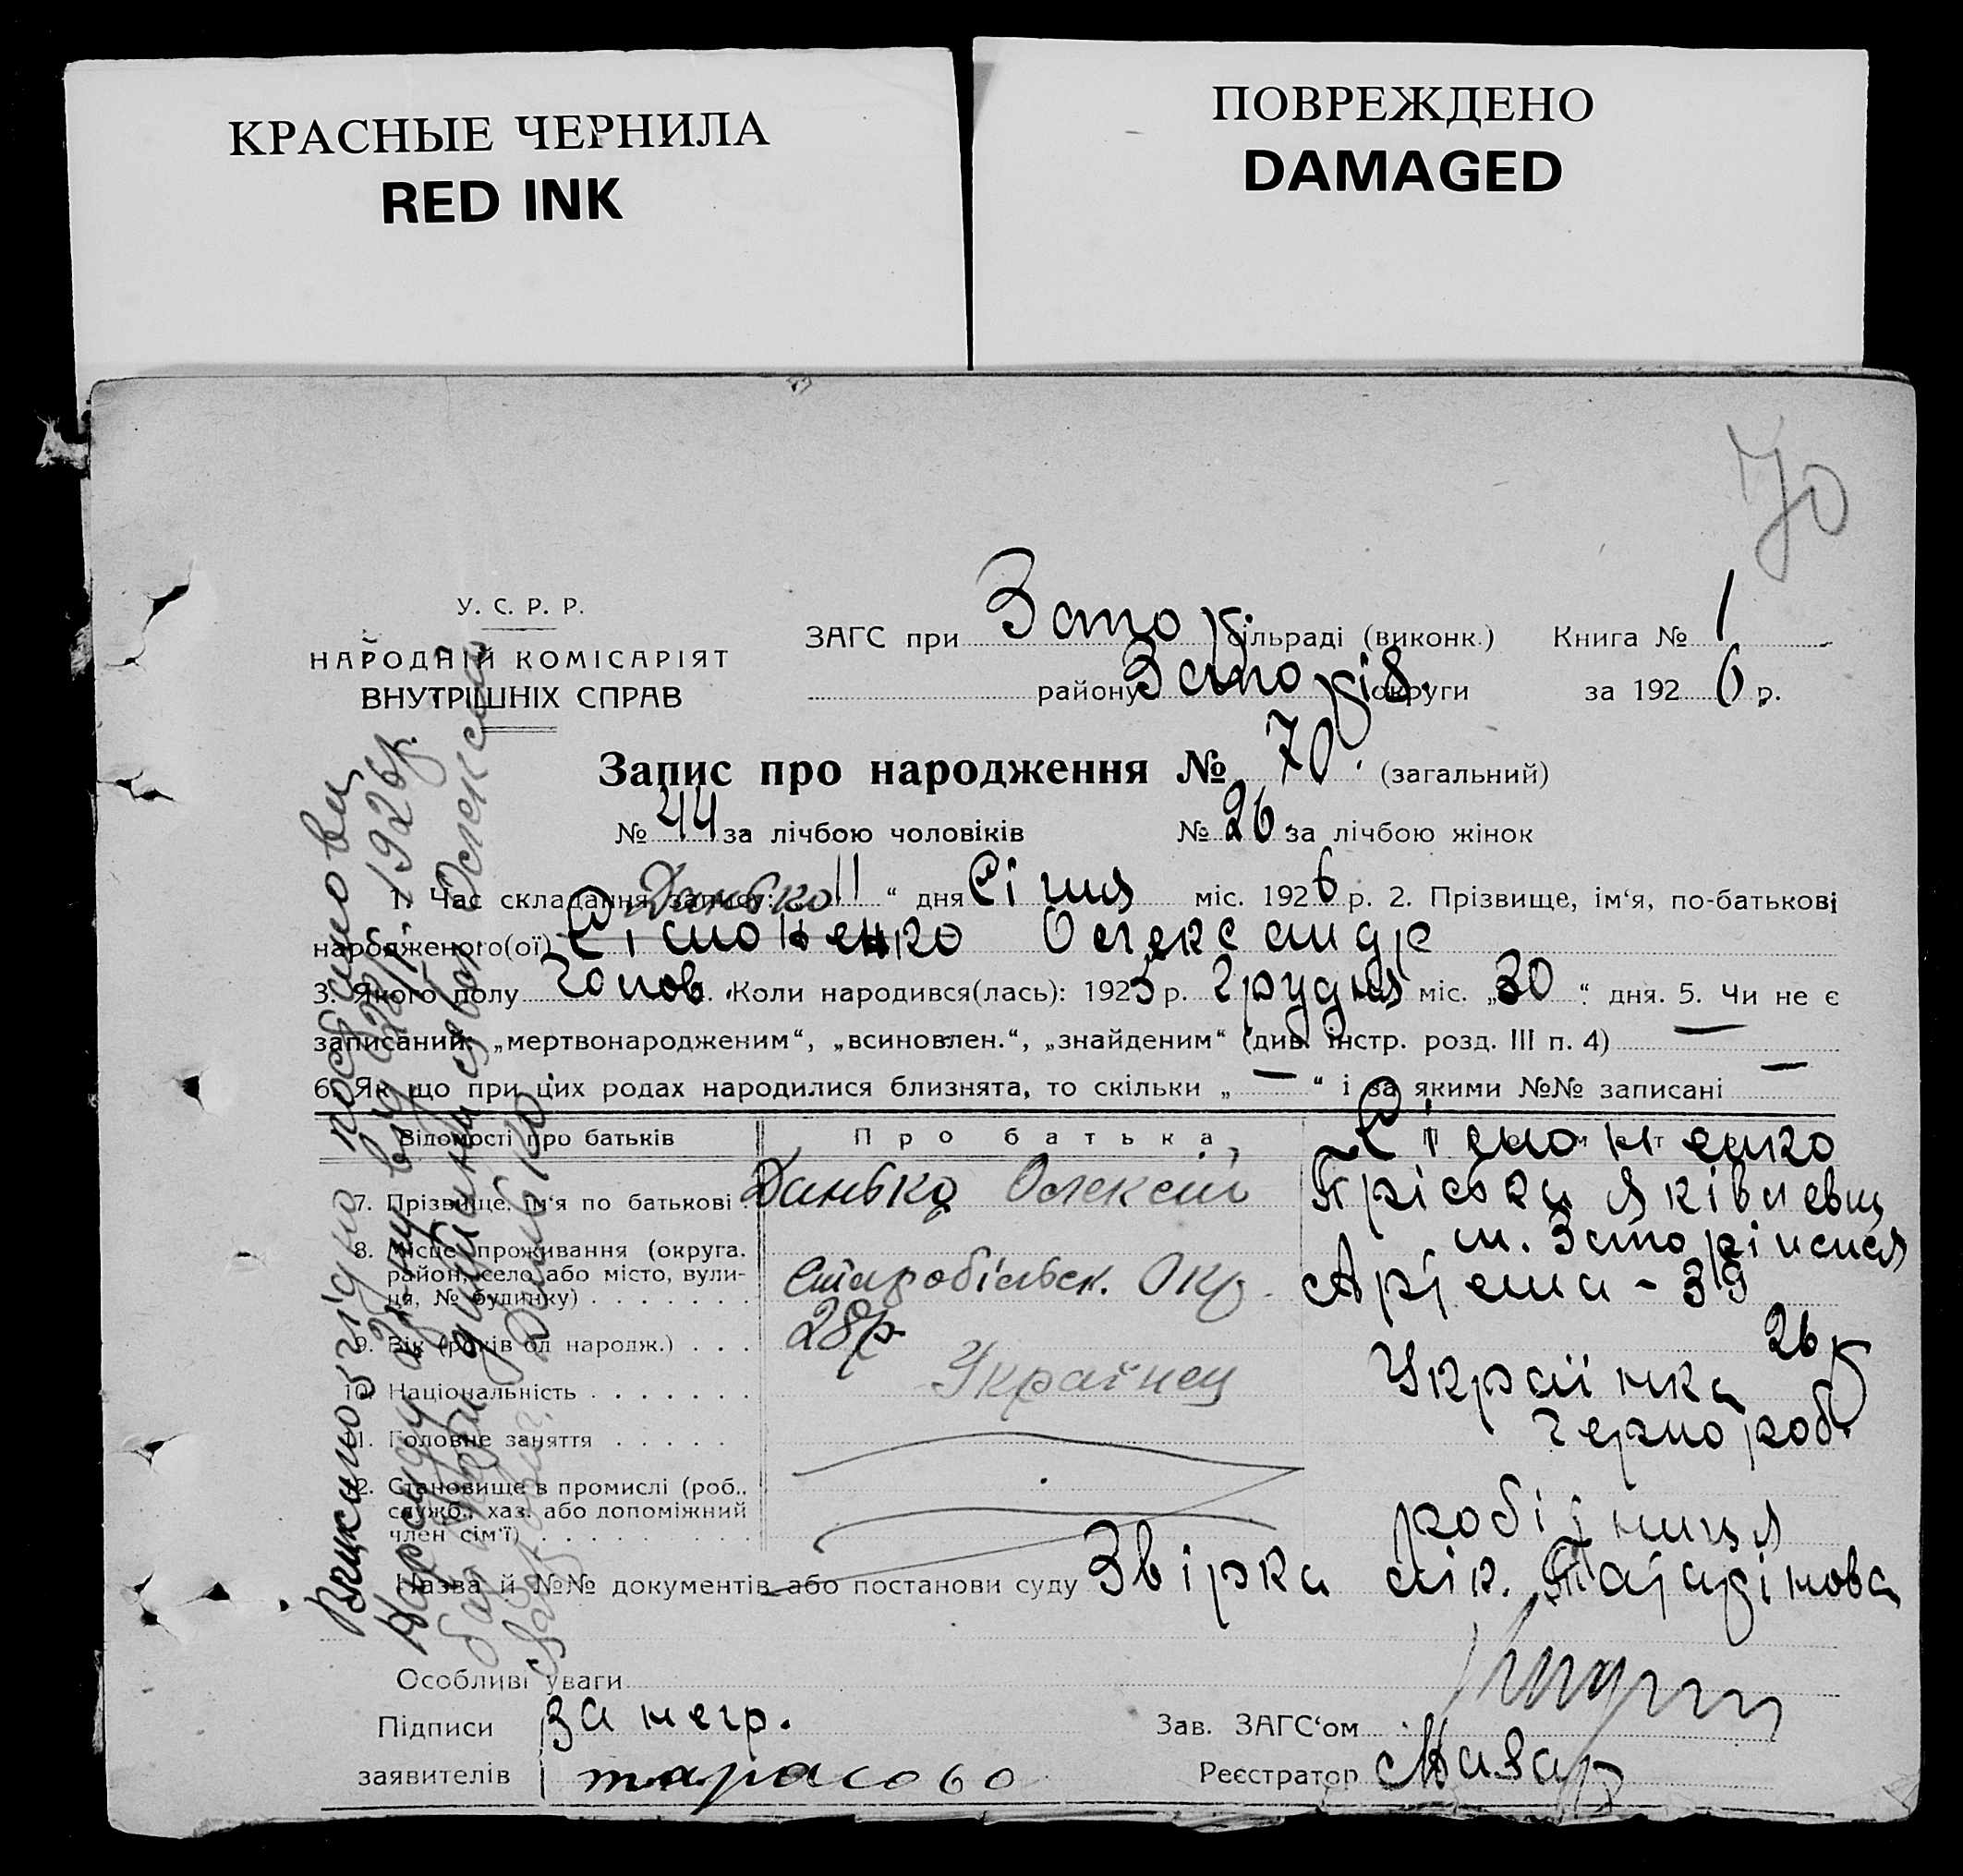 КРАСНЫЕ ЧЕРНИЛА
RED INK
ПОВРЕЖДЕНО
DAMAGED
70
У. С. Р. Р.
НАРОДНІЙ КОМІСАРІЯТ
ВНУТРІШНІХ СПРАВ
ЗАГС при Запорі сільраді (виконк.) Книга № 1
району Запорія. округи за 1926 р.
Запис про народження № 70. (загальний)
№ 44 за лічбою чоловіків № 26 за лічбою жінок
1. Час складання запису: „11“ дня Січня міс. 1926 р. 2. Прізвище, ім‘я, по-батькові
Данько
народженого(ої) Олександр
3. Якого полу Чолов. Коли народився(лась): 1925 р. Грудня міс. „30“ дня. 5. Чи не є
записаний: „мертвонародженим“, „всиновлен.“, „знайденим“ (див. інстр. розд. III п. 4) —
6. Як що при цих родах народилися близнята, то скільки „—“ і за якими №№ записані —
Відомості про батьків Про батька
7. Прізвище, ім‘я по батькові Данько Олексій Яківлевна
8. Місце проживання (округа, район, село або місто, вулиця, № будинку) Старобільськ. Окр. м. Запоріжжя
Артема - 39
9. Вік (років од народж.) 28р 26 р
10. Національність Українец Українка
11. Головне заняття Чернороб.
12. Становище в промислі (роб., служб., хаз. або допоміжний член сім‘ї) робітниця
Назва й №№ документів або постанови суду Звірка лік.
Особливі уваги
Підписи за негр. Зав. ЗАГС‘ом
заявителів тарасово Реєстратор Мазар
Виписано згідно постанови
Нарсуду від 1926р.
Данько